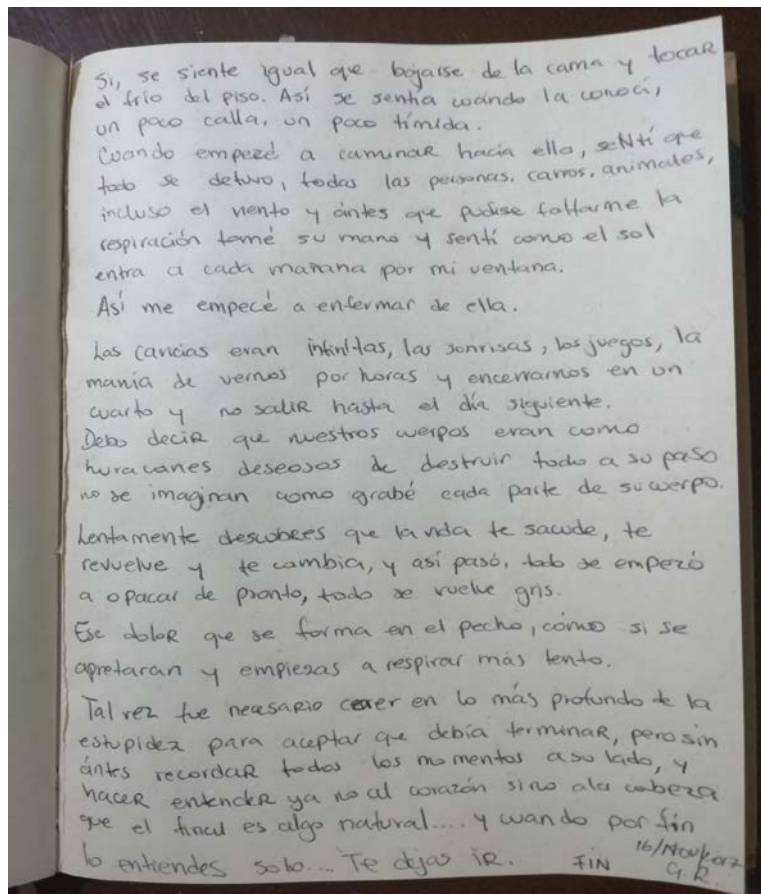 Si, se siente igual que bajarse de la cama y tocar
el frío del piso. Así se sentia cuándo la conocí,
un poco calla, un poco tímida.
Cuando empezé a caminar hacia ella, sentí que
todo se detuvo, todas las personas. carros. animales,
incluso el viento y ántes que pudise faltarme la
respiración tomé su mano y sentí como el sol
entra a cada manana por mi ventana.
Así me empecé a enfermar de ella.
Las caricias eran infinitas, las sonrisas, los juegos, la
manía de vernos por horas y encerrarnos en un
cuarto y no salir hasta el día siguiente.
Debo decir que nuestros cuerpos eran como
huracanes deseosos de destruir todo a su paso
no se imaginan como grabé cada parte de su cuerpo.
Lentamente descubres que la vida te sacude, te
revuelve y te cambia, y así pasó, todo se empezó
a opacar de pronto, todo se vuelve gris.
Ese dolor que se forma en el pecho, cómo si se
apretaran y empiesas a respirar más lento.
Tal vez fue necesario caer en lo más profundo de la
estupidez para aceptar que debía terminar, pero sin
ántes recordar todos los momentos a su lado, y
hacer entender ya no al corazón sino ala cabeza
que el final es algo natural.... y cuando por fin
lo entiendes solo... Te dejas ir. FIN 16/Nov/
G.R.